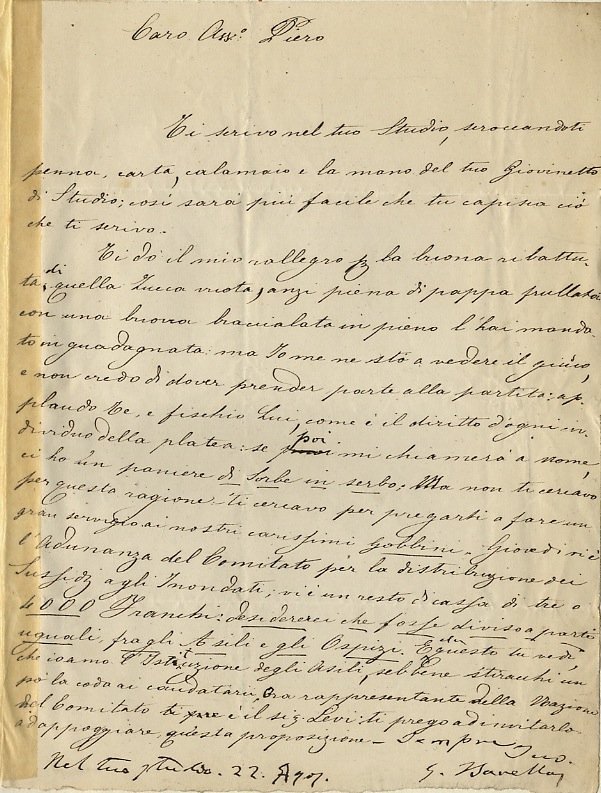 Caro Avv.o Piero
Ti scrivo nel tuo Studio, scroccandoti
penna, carta, calamaio e la mano del tuo Giovinetto
di Studio; così sarà più facile che tu capisca ciò
che ti scrivo.
Ti do il mio rallegro la buona ribattu-
ta di quella Zucca vuota, anzi piena di pappa frullata
con una buona bracciata in pieno l'hai manda-
to in guadagnata: ma Io me ne stò a vedere il giuoco,
e non credo di dover prender parte alla partita: ap-
plaudo Te, e fischio Lui, come è il diritto d'ogni in-
dividuo della platea: se poi mi chiamerà a nome,
ci ho un paniere di Sorbe in serbo; Ma non ti cercavo
per questa ragione. Ti cercavo per pregarti a fare un
gran servigio ai nostri carissimi gobbini. Giovedì vi è
l'Adunanza del Comitato per la distribuzione dei
Sussidj agli Inondati; vi è un resto di cassa di tre o
4000 Franchi: desidererei che fosse diviso a parti
uguali, fra gli Asili e gli Ospizj. E questo tu vedi
che io amo l'Istituzione degli Asili, sebbene stiracchi un
po' la coda ai caudatarii. Ora rappresentante della Nazione
nel Comitato è il sig. Levi: ti prego ad invitarlo
ad appoggiare questa proposizione. Sempre tuo.
Nel tuo studio. 22.
G.